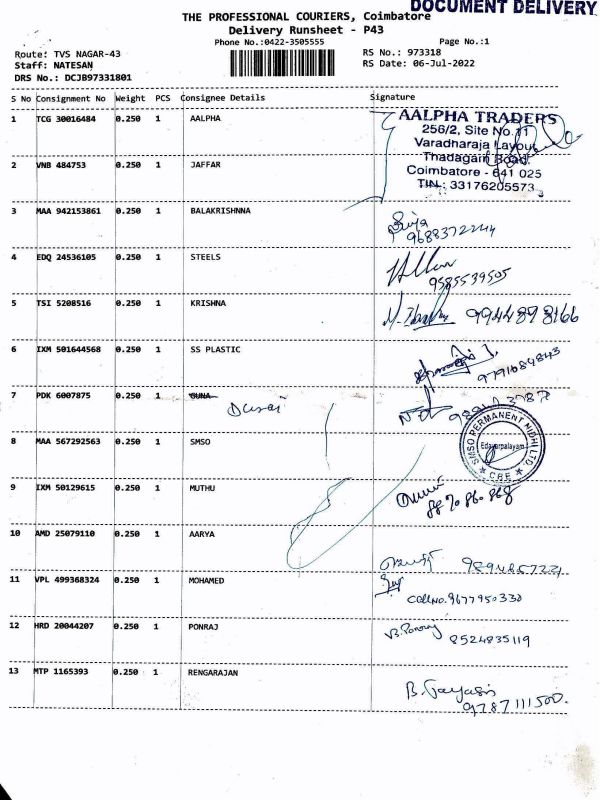 DOCUMENT DELIVERY
THE PROFESSIONAL COURIERS, Coimbatore
Delivery Runsheet - P43
Phone No.:0422-3505555 Page No.:1
Route: TVS NAGAR-43 RS No.: 973318
Staff: NATESAN RS Date: 06-Jul-2022
DRS No.: DCJB97331801
S No Consignment No Weight PCS Consignee Details Signature
1 TCG 30016484 0.250 1 AALPHA
AALPHA TRADERS
256/2, Site No.11
Varadharaja Layout
Thadagam Road,
Coimbatore - 641 025
TIN.: 33176205573
2 VNB 484753 0.250 1 JAFFAR
3 MAA 942153861 0.250 1 BALAKRISHNNA
9688372244
4 EDQ 24536105 0.250 1 STEELS
9585539505
5 TSI 5208516 0.250 1 KRISHNA
9944898166
6 IXM 501644568 0.250 1 SS PLASTIC
9791684843
7 PDK 6007875 0.250 1 GUNA Durai
8 MAA 567292563 0.250 1 SMSO
SMSO PERMANENT NIDHI LTD
Edayarpalayam
CBE
9 IXM 50129615 0.250 1 MUTHU
88 70 860 868
10 AMD 25079110 0.250 1 AARYA
11 VPL 499368324 0.250 1 MOHAMED
Cell No. 9677950330
12 HRD 20044207 0.250 1 PONRAJ
B. Ponraj 8524835119
13 MTP 1165393 0.250 1 RENGARAJAN
9787111500.